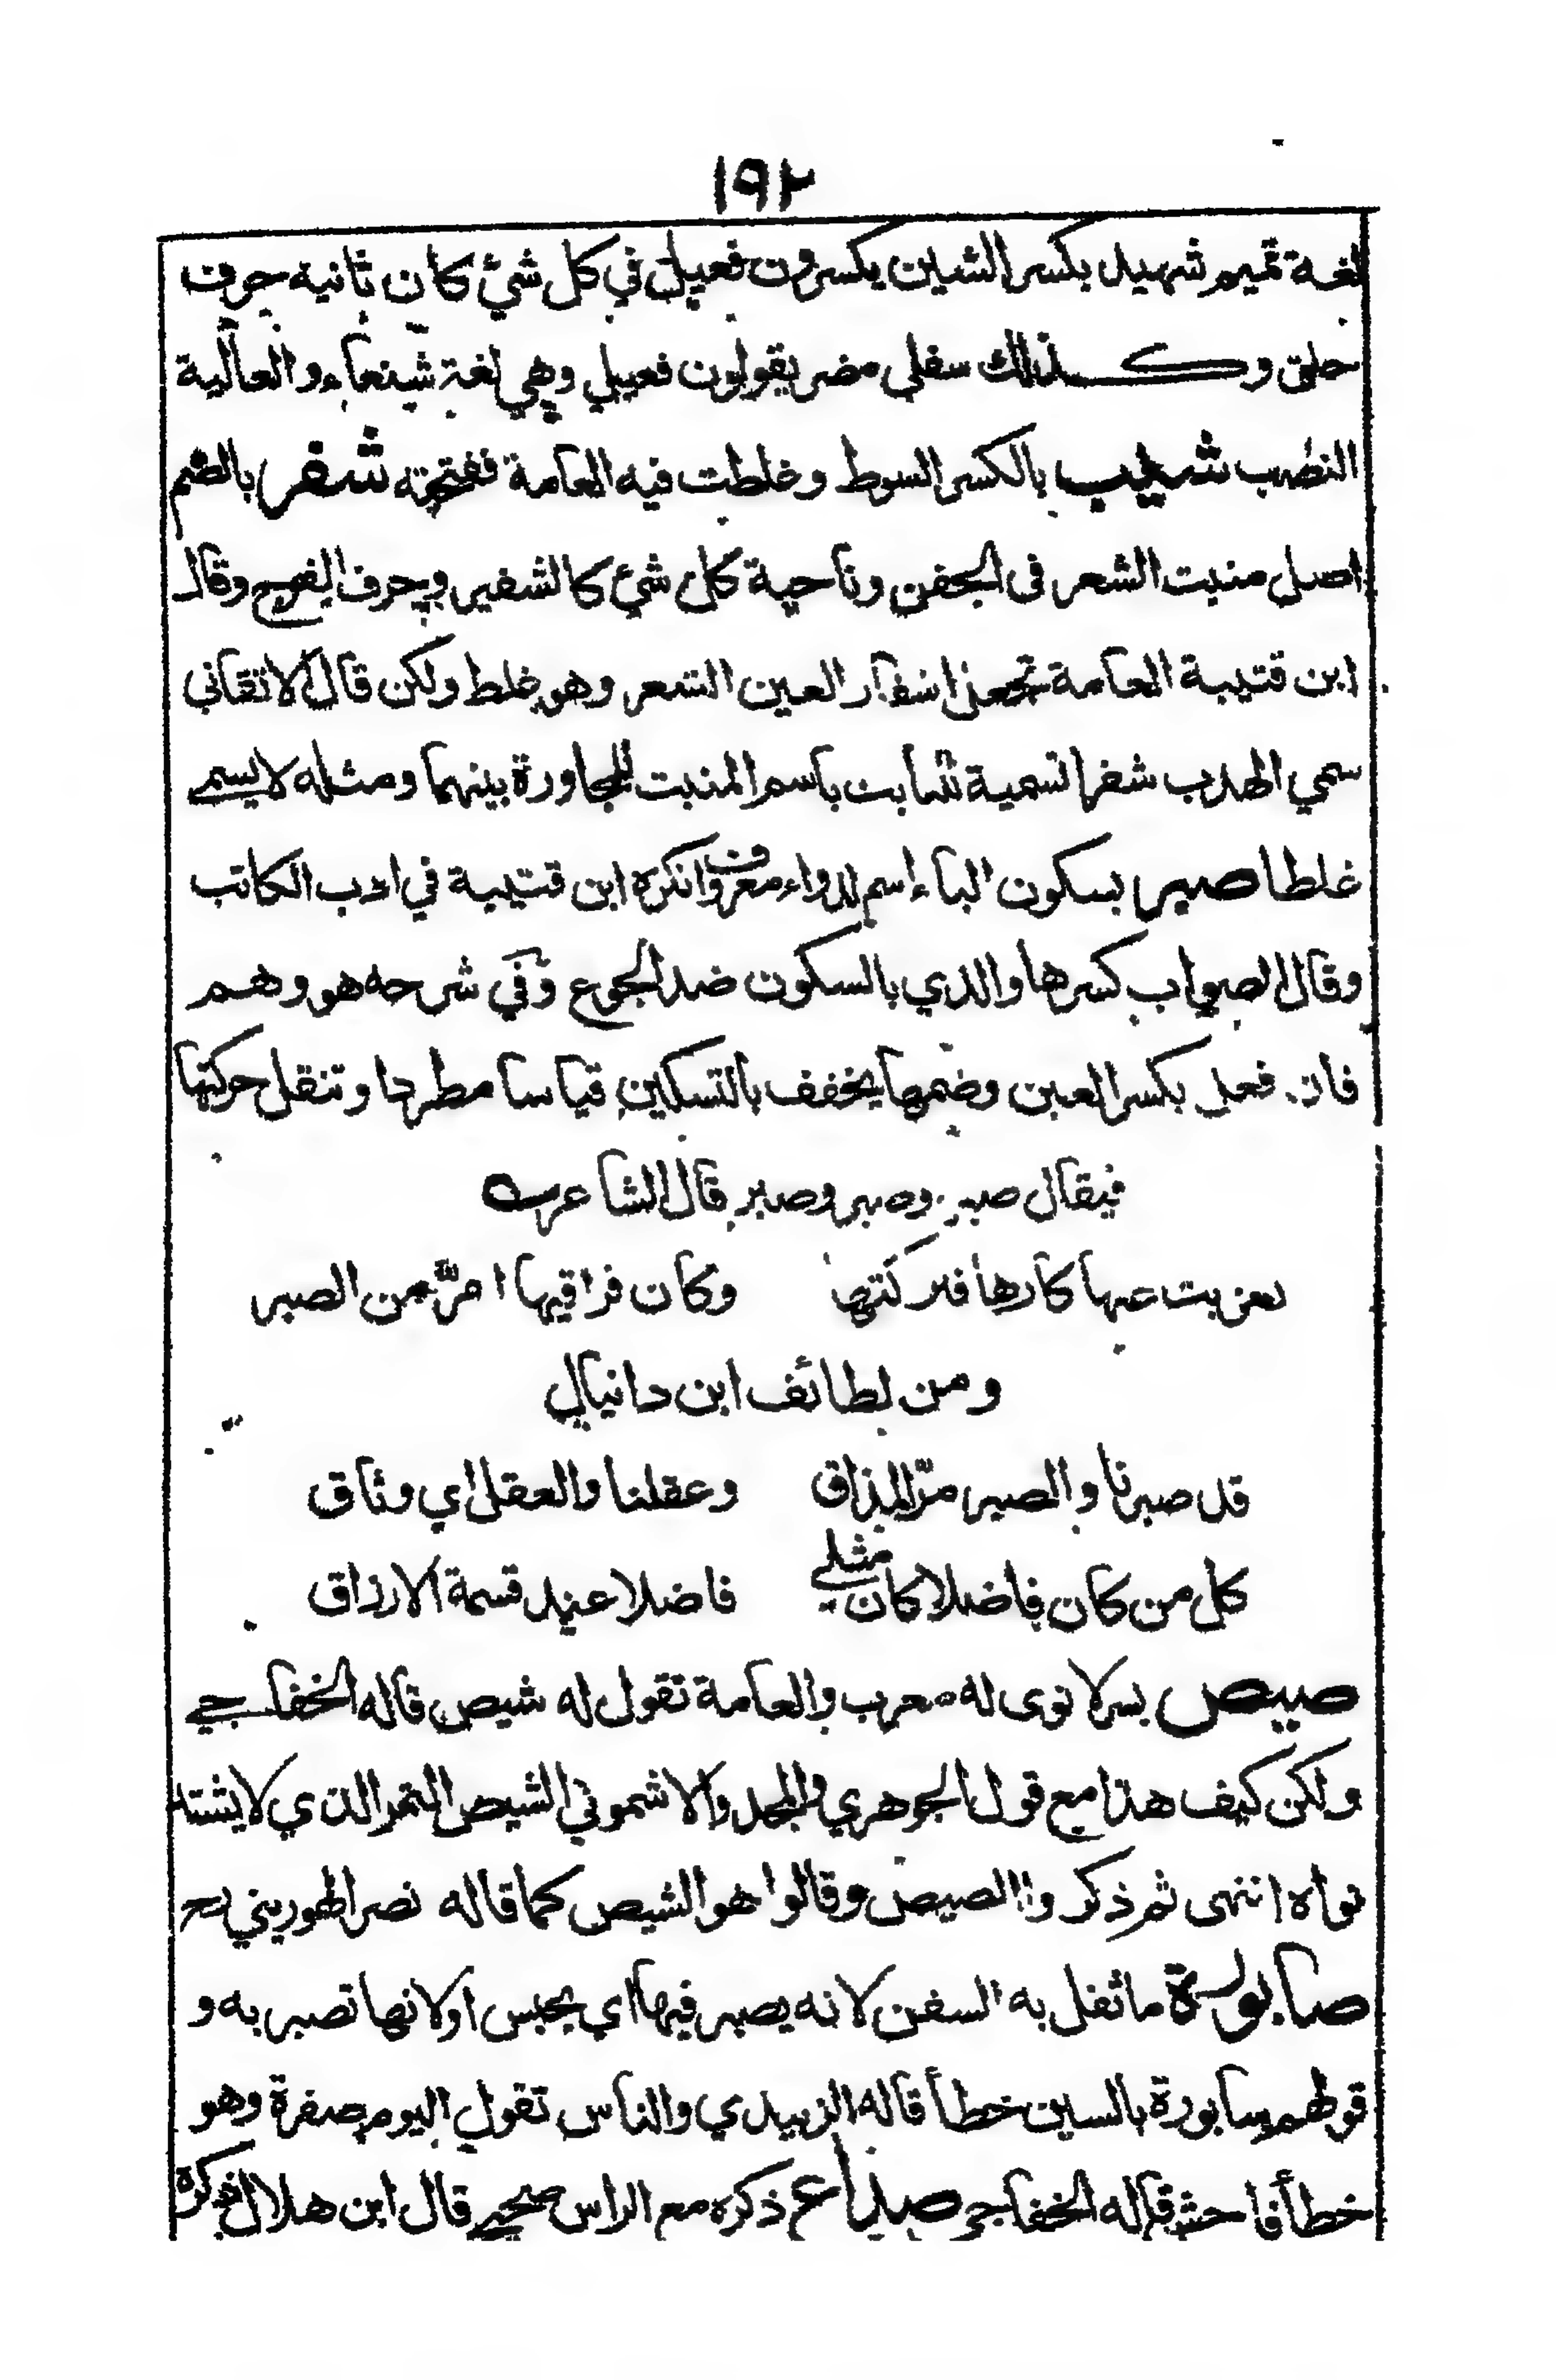 ١٩٢
لغة تميم شهيد بكسر الشين يكسرون فعيل في كل شئ كان ثانية حرف
حلق وكذلك سفلي مضر يقولون فعيل وهي لغة شنعاء والعالية
النصب شيب بالكسر السوط وغلطت فيه العامة ففتحته شفر بالضم
اصل منبت الشعر فى الجفن وناحية كل شئ كالشفير وحرف الفرج وقال
ابن قتيبة العامة تجعل اشفار العين الشعر وهو غلط ولكن قال الاتقانى
سمي الهدب شفرا تسمية نابت باسم المنبت للمجاورة بينهما ومثله لا يسمى
غلطا صبر بسكون الباء إسم لدواء معروف وانكره ابن قتيبة في ادب الكاتب
وقال الصواب كسرها والذي بالسكون ضد الجوع وفي شرحه هو وهم
فان فعل بكسر العين وضمها يخفف بالتسكين قياسا مطردا وتنقل حركتها
فيقال صبر وصبر وصبر قال الشاعر
تعزيت عنها كارها فتركتها وكان فراقيها امرّ من الصبر
ومن لطائف ابن دانيال
قد صبرنا والصبر مرّ المذاق وعقلنا والعقل اي وثاق
كل من كان فاضلا كان مثلي فاضلا عند قسمة الارزاق
صيص بسر لا نوى له معرب والعامة تقول له شيص قاله الخفاجي
ولكن كيف هذا مع قول الجوهري والمجد والاشموني الشيص التمر الذي لا يشتد
نواه انتهى ثم ذكروا الصيص وقالوا هو الشيص كما قاله نصر الهوريني رح
صابورة ما ثقل به السفن لانه يصبر فيها اي يحبس او لانها تصبر به و
قولهم سابورة بالسين خطأ قاله الزبيدي والناس تقول اليوم صفرة وهو
خطأ فاحش قاله الخفاجي صداع ذكره مع الراس صحيح قال ابن هلال ذكره